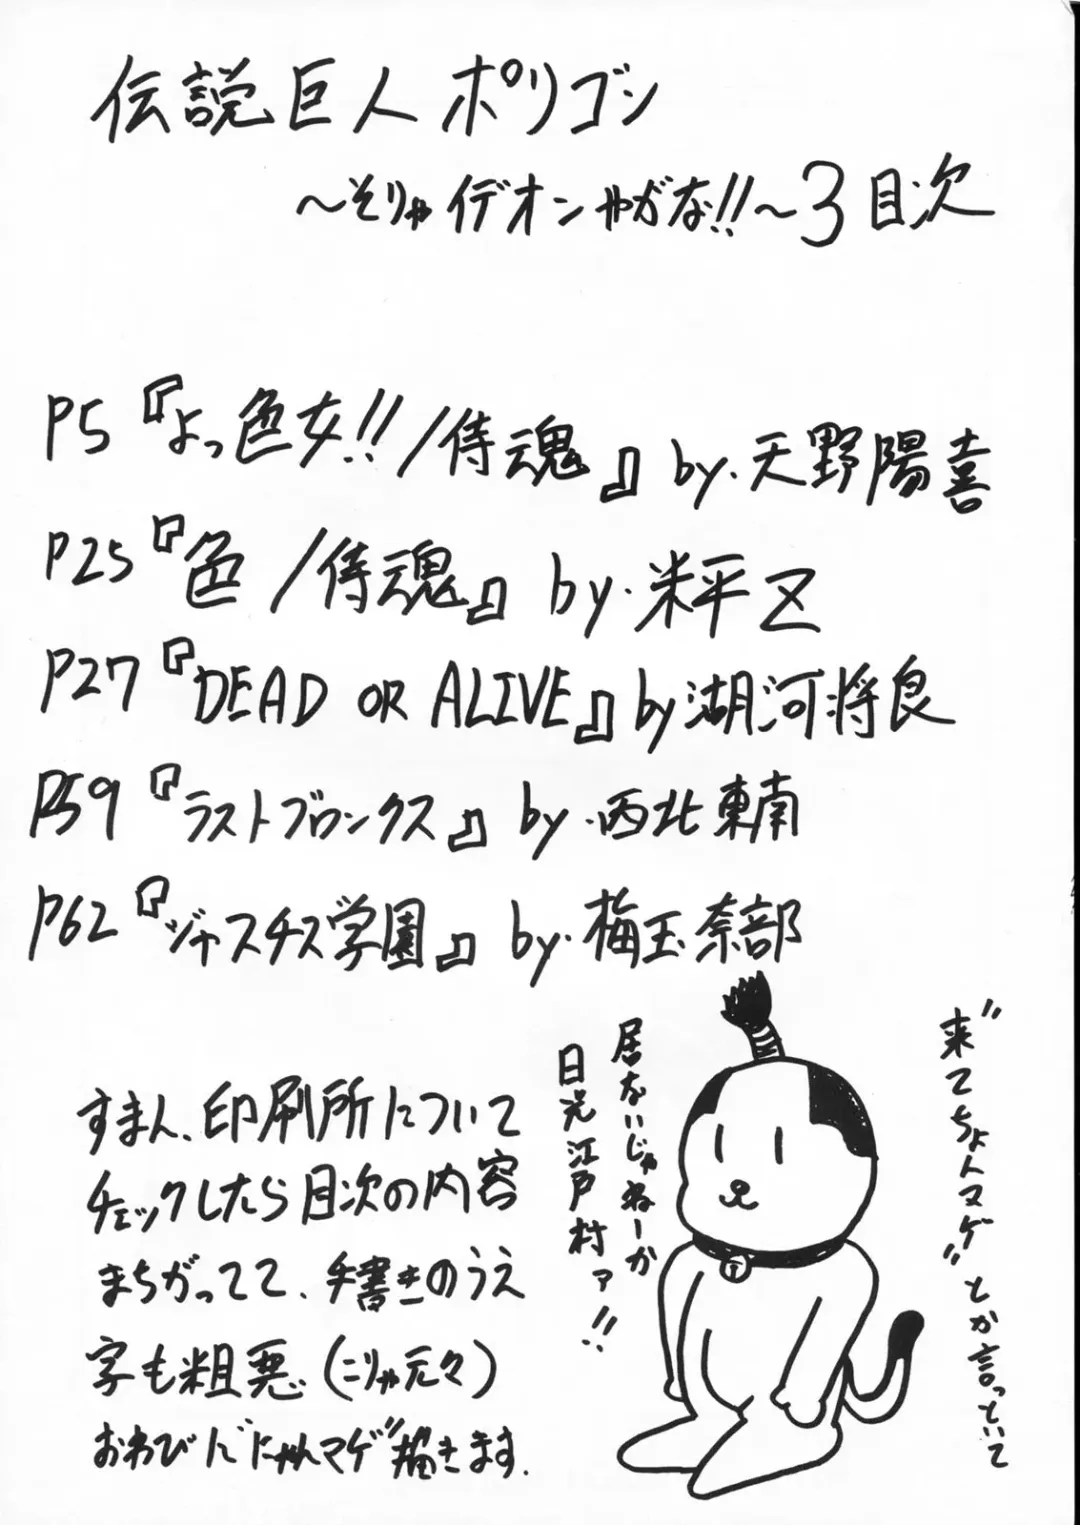 伝説巨人ポリゴン
～そりゃイデオンやがな!!～3 目次
P5『よっ色女!!/侍魂』by.天野陽喜
P25『色/侍魂』by.米平Z
P27『DEAD OR ALIVE』by湖河将良
P59『ラストブロンクス』by.西北東南
P62『ジャスチス学園』by.梅玉奈部
すまん、印刷所について
チェックしたら目次の内容
まちがってて、手書きのうえ
字も粗悪(こりゃ元々)
おわびに"にゃんマゲ"描きます.
"来てちょんマゲ"とか言っといて
居ないじゃねーか
日光江戸村ァ!!